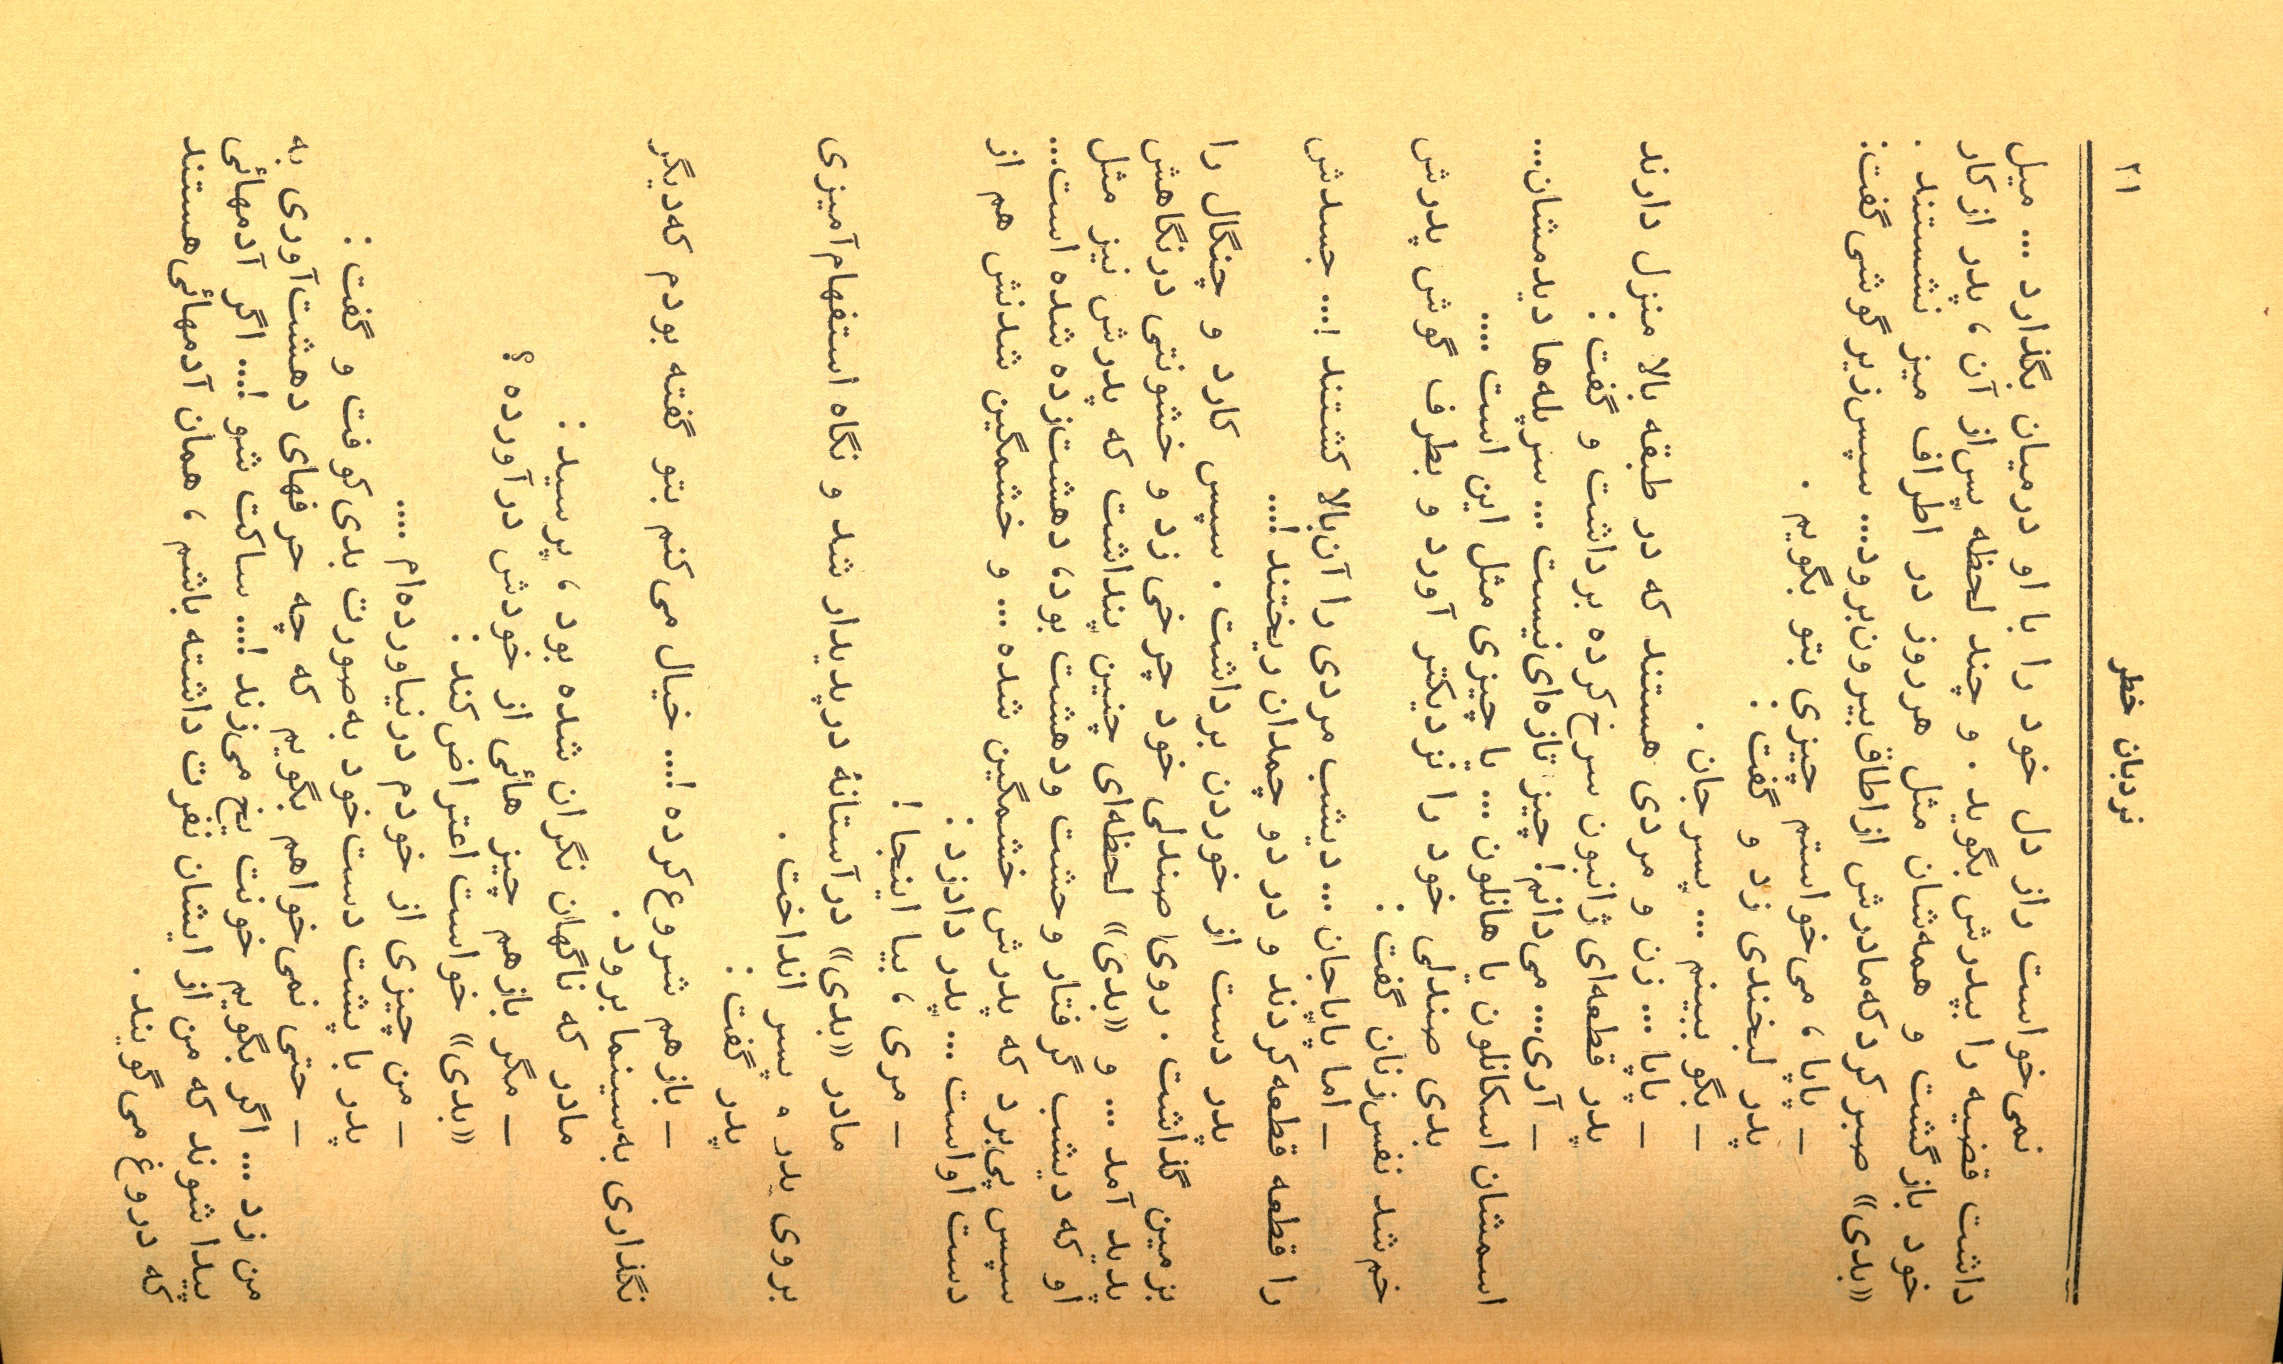 نردبان خطر
۲۱
نمی‌خواست راز دل خود را با او درمیان بگذارد ... میل
داشت قضیه را بپدرش بگوید . و چند لحظه پس‌از آن ، پدر از کار
خود بازگشت و همه‌شان مثل هرروز در اطراف میز نشستند .
«بدی» صبر کرد که‌مادرش ازاطاق‌بیرون‌برود... سپس‌زیر گوشی گفت:
— پاپا ، می‌خواستم چیزی بتو بگویم .
پدر لبخندی زد و گفت :
— بگو ببینم ... پسر جان .
— پاپا ... زن و مردی هستند که در طبقه بالا منزل دارند
پدر قطعه‌ای ژانبون سرخ‌کرده برداشت و گفت :
— آری... می‌دانم! چیز تازه‌ای‌نیست ... سرپله‌ها دیدمشان...
اسمشان اسکانلون یا هانلون ... یا چیزی مثل این است ....
بدی صندلی خود را نزدیکتر آورد و بطرف گوش پدرش
خم‌شد نفس‌زنان گفت :
— اما باباجان ... دیشب مردی را آن‌بالا کشتند !... جسدش
را قطعه قطعه‌کردند و در دو چمدان ریختند !...
پدر دست از خوردن برداشت . سپس کارد و چنگال را
بزمین گذاشت . روی صندلی خود چرخی زد و خشونتی درنگاهش
پدید آمد ... و «بدی» لحظه‌ای چنین پنداشت که پدرش نیز مثل
او که دیشب گرفتار وحشت ودهشت بود، دهشت‌زده شده است...
سپس پی‌برد که پدرش خشمگین شده ... و خشمگین شدنش هم از
دست اواست ... پدر دادزد :
— مری ، بیا اینجا !
مادر «بدی» درآستانهٔ درپدیدار شد و نگاه استفهام‌آمیزی
بروی پدر و پسر انداخت .
پدر گفت :
— بازهم شروع‌کرده !... خیال می‌کنم بتو گفته بودم که‌دیگر
نگذاری به‌سینما برود .
مادر که ناگهان نگران شده بود ، پرسید :
— مگر بازهم چیز هائی از خودش درآورده ؟
«بدی» خواست اعتراض‌کند :
— من چیزی از خودم درنیاورده‌ام ....
پدر با پشت دست‌خود به‌صورت بدی‌کوفت و گفت :
— حتی نمی‌خواهم بگویم که چه حرفهای دهشت‌آوری به
من زد ... اگر بگویم خونت یخ‌می‌زند !... ساکت شو !... اگر آدمهائی
پیدا شوند که من از ایشان نفرت داشته باشم ، همان آدمهائی‌هستند
که دروغ می‌گویند .